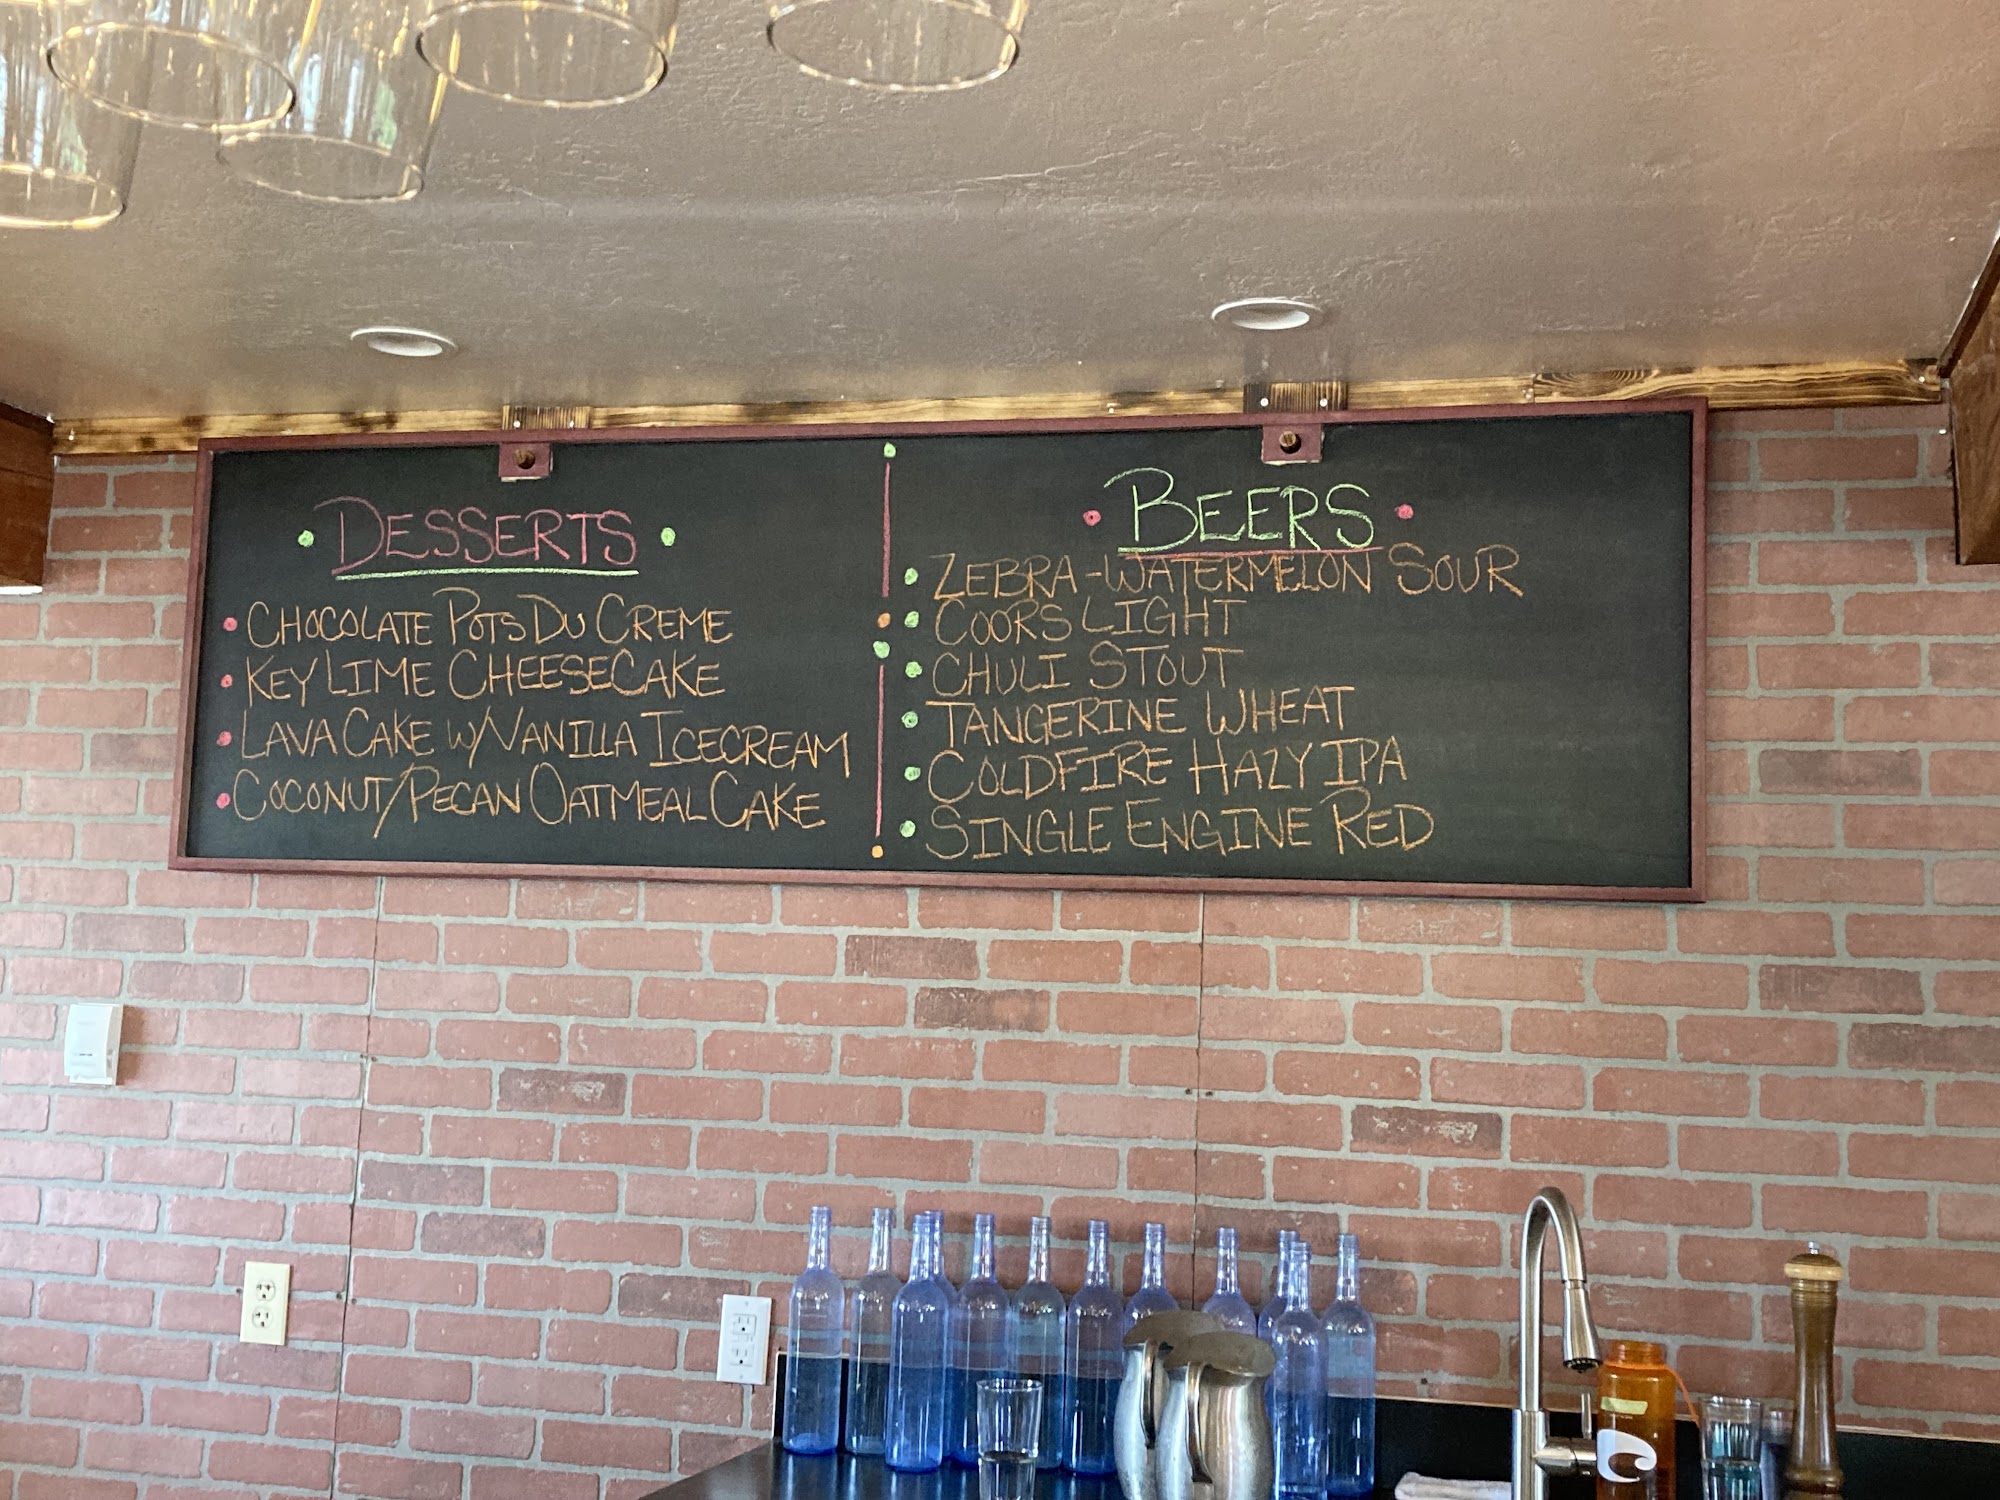 DESSERTS
CHOCOLATE POTS DU CREME
KEY LIME CHEESECAKE
LAVA CAKE W/VANILLA ICECREAM
COCONUT/PECAN OATMEAL CAKE
BEERS
ZEBRA-WATERMELON SOUR
COORS LIGHT
CHULI STOUT
TANGERINE WHEAT
COLDFIRE HAZY IPA
SINGLE ENGINE RED